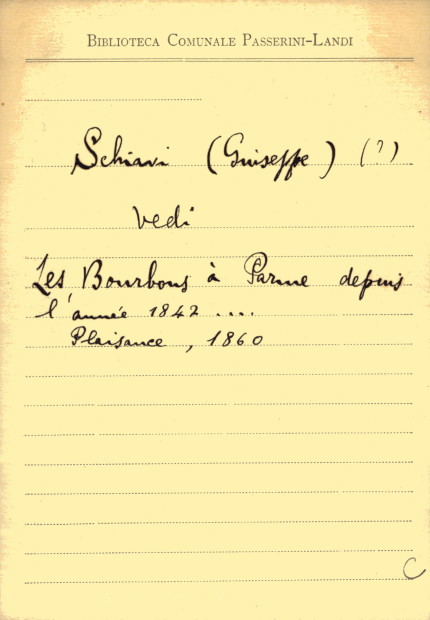 BIBLIOTECA COMUNALE PASSERINI-LANDI
Schiavi (Giuseppe) (?)
vedi
Les Bourbons à Parme depuis
l'année 1847 ....
Plaisance, 1860
C